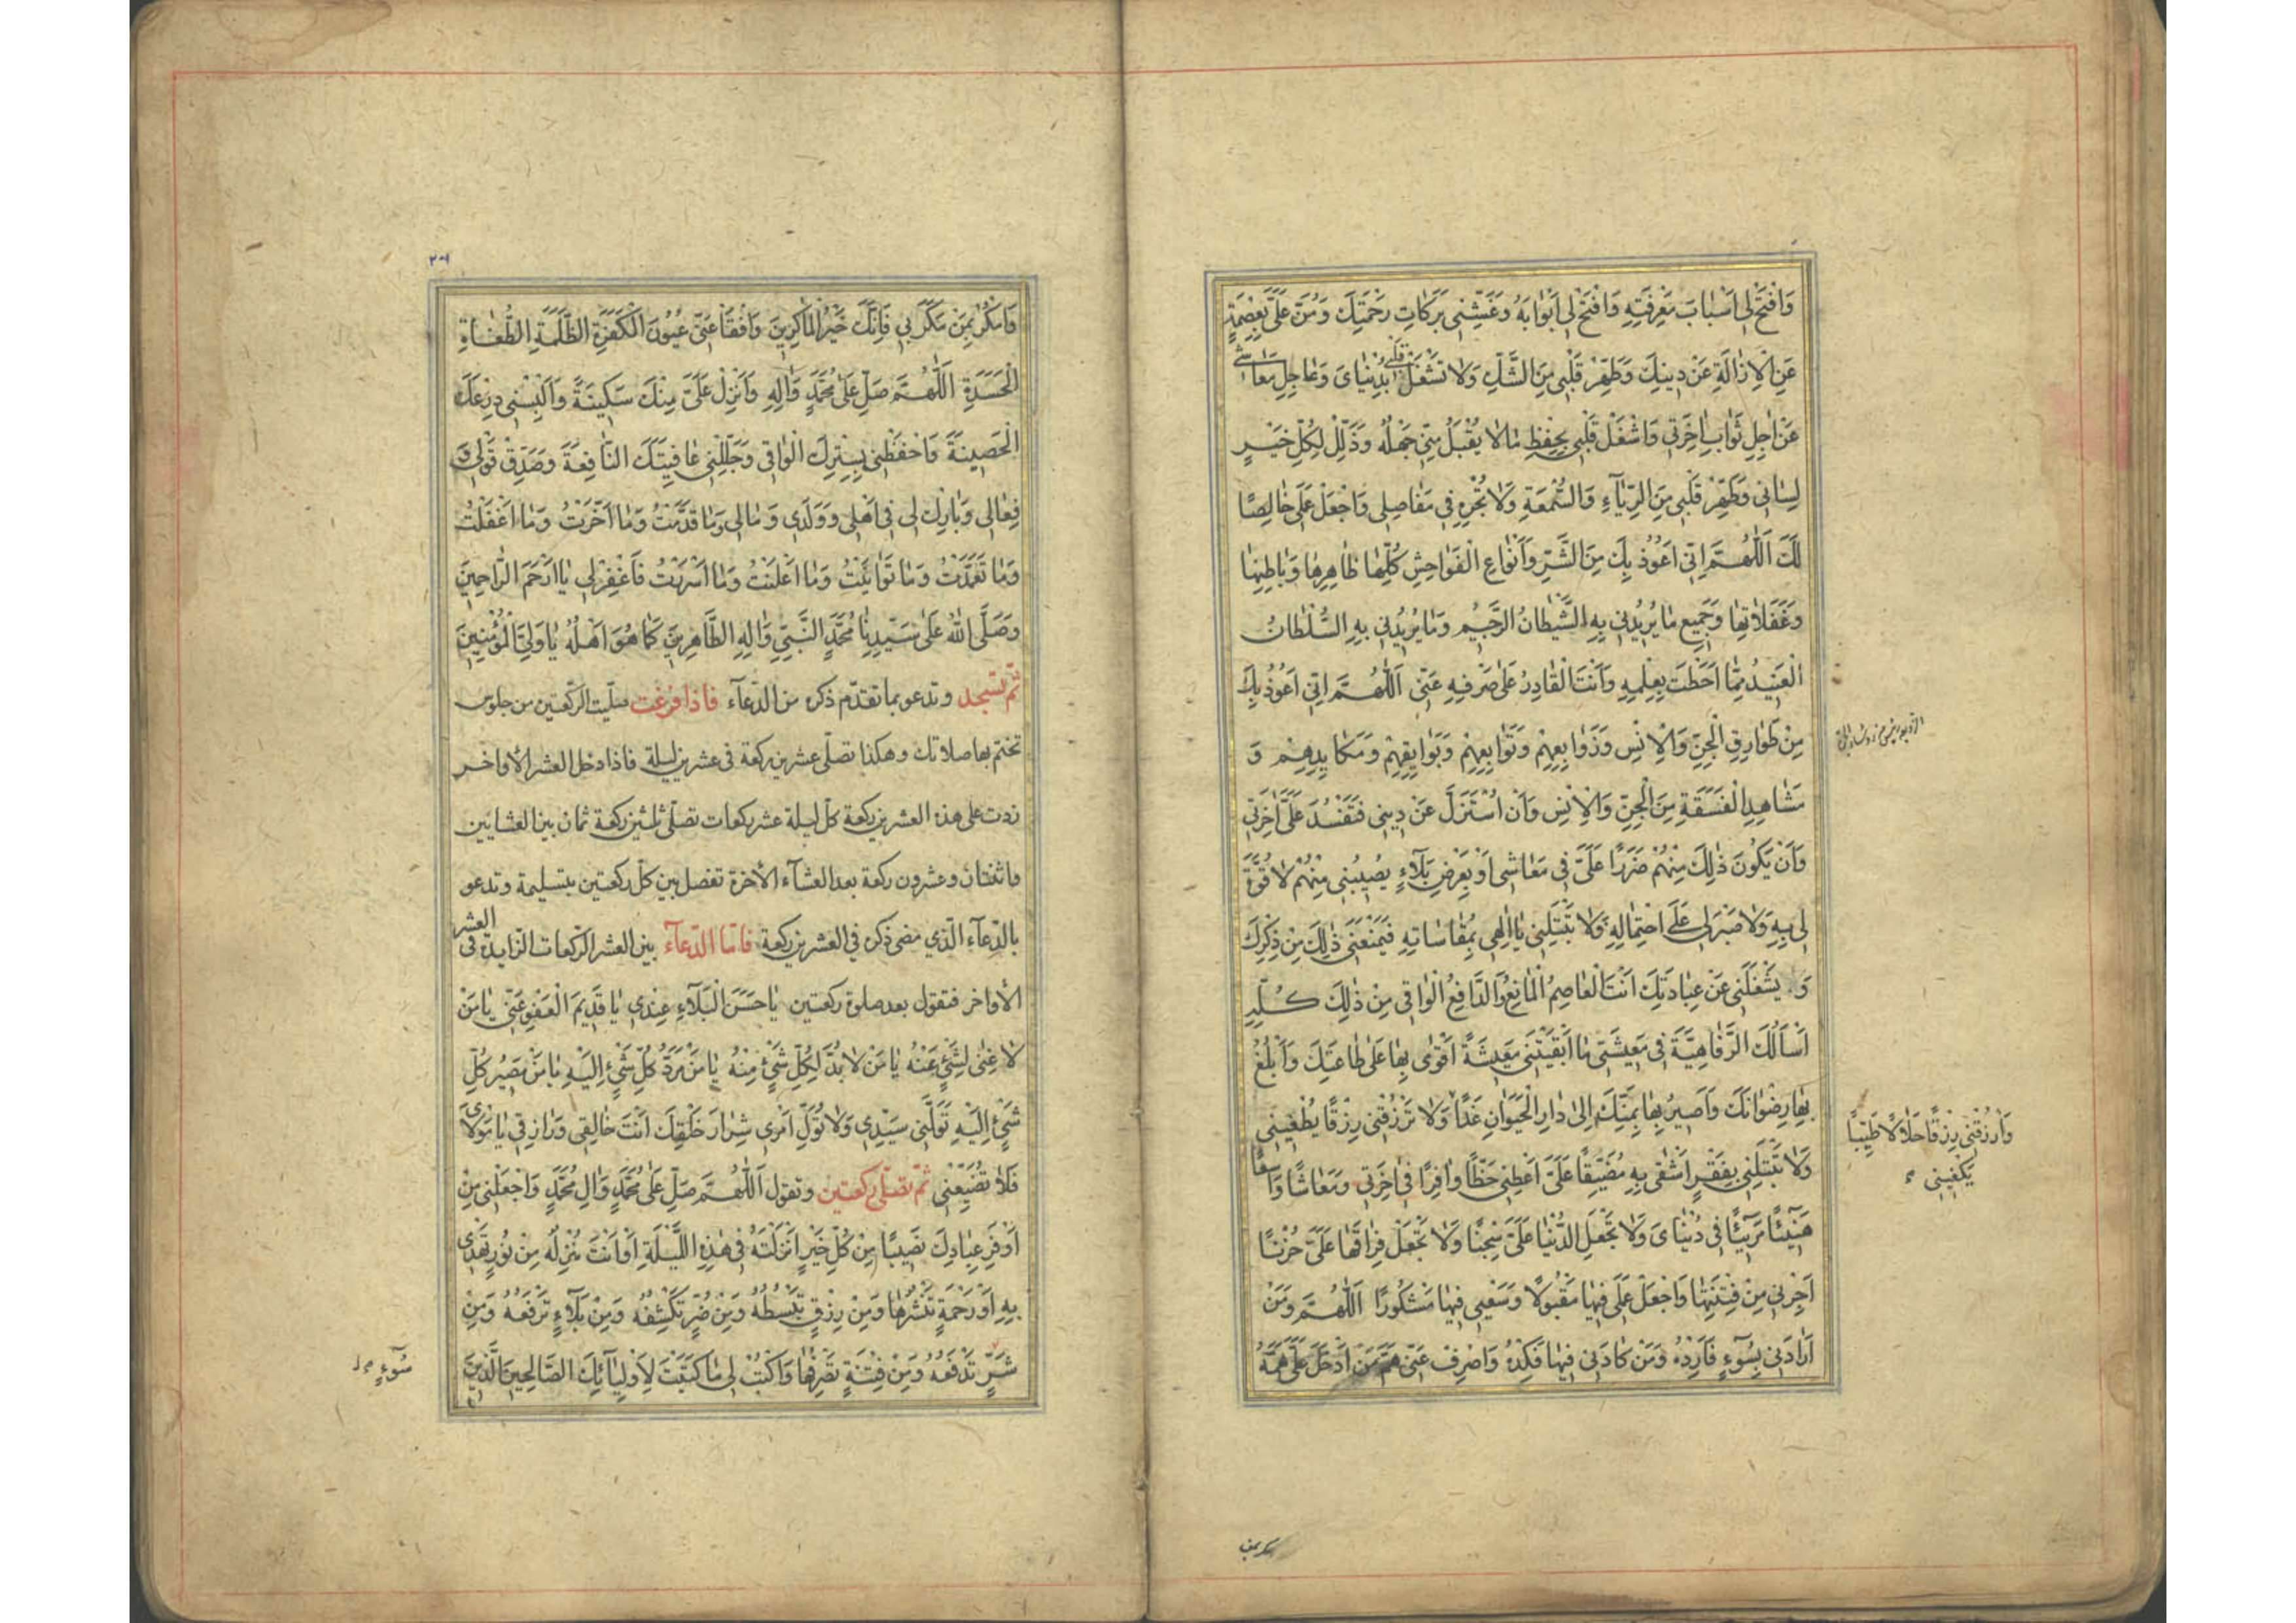 وَافْتَحْ لِي اَسْبٰابَ مَعْرِفَتِهِ وَافْتَحْ لِي اَبْوٰابَهُ وَغَشِّنِي بَرَكٰاتِ رَحْمَتِكَ وَمُنَّ عَلَيَّ بِعِصْمَةٍ
عَنِ الْاِزٰالَةِ عَنْ دِينِكَ وَطَهِّرْ قَلْبِي مِنَ الشَّكِّ وَلٰا تَشْغَلْ قَلْبِي بِدُنْيٰايَ وَعٰاجِلِ مَعٰاشِي
عَنْ اٰجِلِ ثَوٰابِ اٰخِرَتِي وَاشْغَلْ قَلْبِي بِحِفْظِ مٰا لٰا يُقْبَلُ مِنِّي جَهْلُهُ وَذَلِّلْ لِكُلِّ خَيْرٍ
لِسٰانِي وَطَهِّرْ قَلْبِي مِنَ الرِّيٰآءِ وَالسُّمْعَةِ وَلٰا تُجْرِهِ فِي مَفٰاصِلِي وَاجْعَلْ عَمَلِي خٰالِصًا
لَكَ اَللّٰهُمَّ اِنِّي اَعُوذُ بِكَ مِنَ الشَّرِّ وَاَنْوٰاعِ الْفَوٰاحِشِ كُلِّهٰا ظٰاهِرِهٰا وَبٰاطِنِهٰا
وَغَفَلٰاتِهٰا وَجَمِيعِ مٰا يُرِيدُنِي بِهِ الشَّيْطٰانُ الرَّجِيمُ وَمٰا يُرِيدُنِي بِهِ السُّلْطٰانُ
الْعَنِيدُ مِمّٰا اَحَطْتَ بِعِلْمِهِ وَاَنْتَ الْقٰادِرُ عَلٰى صَرْفِهِ عَنِّي اَللّٰهُمَّ اِنِّي اَعُوذُ بِكَ
مِنْ طَوٰارِقِ الْجِنِّ وَالْاِنْسِ وَزَوٰابِعِهِمْ وَتَوٰابِعِهِمْ وَبَوٰايِقِهِمْ وَمَكٰايِدِهِمْ وَ
مَشٰاهِدِ الْفَسَقَةِ مِنَ الْجِنِّ وَالْاِنْسِ وَاَنْ اُسْتَزَلَّ عَنْ دِينِي فَتَفْسُدَ عَلَيَّ اٰخِرَتِي
وَاَنْ يَكُونَ ذٰلِكَ مِنْهُمْ ضَرَرًا عَلَيَّ فِي مَعٰاشِي اَوْ بِعَرْضِ بَلٰآءٍ يُصِيبُنِي مِنْهُمْ لٰا قُوَّةَ
لِي بِهِ وَلٰا صَبْرَ لِي عَلَى احْتِمٰالِهِ وَلٰا تَبْتَلِيَنِّي يٰا اِلٰهِي بِمُقٰاسٰاتِهِ فَيَمْنَعَنِي ذٰلِكَ مِنْ ذِكْرِكَ
وَ يَشْغَلَنِي عَنْ عِبٰادَتِكَ اَنْتَ الْعٰاصِمُ الْمٰانِعُ وَالدّٰافِعُ الْوٰاقِي مِنْ ذٰلِكَ كُلِّهِ
اَسْاَلُكَ الرَّفٰاهِيَّةَ فِي مَعِيشَتِي مٰا اَبْقَيْتَنِي مَعِيشَةً اَقْوٰى بِهٰا عَلٰى طٰاعَتِكَ وَاَبْلُغُ
بِهٰا رِضْوٰانَكَ وَاَصِيرُ بِهٰا بِمَنِّكَ اِلٰى دٰارِ الْحَيَوٰانِ غَدًا وَلٰا تَرْزُقْنِي رِزْقًا يُطْغِينِي
وَارْزُقْنِي رِزْقًا حَلٰالًا طَيِّبًا
يَكْفِينِي
وَلٰا تَبْتَلِنِي بِفَقْرٍ اَشْقٰى بِهِ مُضَيَّقًا عَلَيَّ اَعْطِنِي حَظًّا وٰافِرًا فِي اٰخِرَتِي وَمَعٰاشًا وٰاسِعًا
هَنِيٓئًا مَرِيٓئًا فِي دُنْيٰايَ وَلٰا تَجْعَلِ الدُّنْيٰا عَلَيَّ سِجْنًا وَلٰا تَجْعَلْ فِرٰاقَهٰا عَلَيَّ حُزْنًا
اَجِرْنِي مِنْ فِتْنَتِهٰا وَاجْعَلْ عَمَلِي فِيهٰا مَقْبُولًا وَسَعْيِي فِيهٰا مَشْكُورًا اَللّٰهُمَّ وَمَنْ
اَرٰادَنِي بِسُوٓءٍ فَاَرِدْهُ وَمَنْ كٰادَنِي فِيهٰا فَكِدْهُ وَاصْرِفْ عَنِّي هَمَّ مَنْ اَدْخَلَ عَلَيَّ هَمَّهُ
وَامْكُرْ بِمَنْ مَكَرَ بِي فَاِنَّكَ خَيْرُ الْمٰاكِرِينَ وَافْقَأْ عَنِّي عُيُونَ الْكَفَرَةِ الظَّلَمَةِ الطُّغٰاةِ
الْحَسَدَةِ اَللّٰهُمَّ صَلِّ عَلٰى مُحَمَّدٍ وَاٰلِهِ وَاَنْزِلْ عَلَيَّ مِنْكَ سَكِينَةً وَاَلْبِسْنِي دِرْعَكَ
الْحَصِينَةَ وَاحْفَظْنِي بِسِتْرِكَ الْوٰاقِي وَجَلِّلْنِي عٰافِيَتَكَ النّٰافِعَةَ وَصَدِّقْ قَوْلِي وَ
فِعٰالِي وَبٰارِكْ لِي فِي اَهْلِي وَوَلَدِي وَمٰالِي وَمٰا قَدَّمْتُ وَمٰا اَخَّرْتُ وَمٰا اَغْفَلْتُ
وَمٰا تَعَمَّدْتُ وَمٰا تَوٰانَيْتُ وَمٰا اَعْلَنْتُ وَمٰا اَسْرَرْتُ فَاغْفِرْ لِي يٰا اَرْحَمَ الرّٰاحِمِينَ
وَصَلَّى اللّٰهُ عَلٰى سَيِّدِنٰا مُحَمَّدٍ النَّبِيِّ وَاٰلِهِ الطّٰاهِرِينَ كَمٰا هُوَ اَهْلُهُ يٰا وَلِيَّ الْمُؤْمِنِينَ
ثمّ تسجد وتدعو بما تقدّم ذكره من الدّعآء فاذا فرغت صلّيت الرّكعتين من جلوس
تختم بها صلاتك وهكذا تصلّى عشرين ركعة فى عشرين ليلة فاذا دخل العشر الأواخر
زدت على هذه العشرين ركعة كلّ ليلة عشر ركعات تصلّى ثلثين ركعة ثمان بين العشايين
واثنتان وعشرون ركعة بعد العشآء الأخرة تفصل بين كلّ ركعتين بتسليمة وتدعو
بالدّعآء الّذي مضى ذكره في العشرين ركعة فامّا الدّعآء بين العشر الرّكعات الزّايدة فى العشر
الأواخر فتقول بعد صلوة ركعتين يٰا حَسَنَ الْبَلٰآءِ عِنْدِي يٰا قَدِيمَ الْعَفْوِ عَنِّي يٰا مَنْ
لٰا غِنٰى لِشَيْءٍ عَنْهُ يٰا مَنْ لٰا بُدَّ لِكُلِّ شَيْءٍ مِنْهُ يٰا مَنْ مَرَدُّ كُلِّ شَيْءٍ اِلَيْهِ يٰا مَنْ مَصِيرُ كُلِّ
شَيْءٍ اِلَيْهِ تَوَلَّنِي سَيِّدِي وَلٰا تُوَلِّ اَمْرِي شِرٰارَ خَلْقِكَ اَنْتَ خٰالِقِي وَرٰازِقِي يٰا مَوْلٰايَ
فَلٰا تُضَيِّعْنِي ثمّ تصلّى ركعتين وتقول اَللّٰهُمَّ صَلِّ عَلٰى مُحَمَّدٍ وَاٰلِ مُحَمَّدٍ وَاجْعَلْنِي مِنْ
اَوْفَرِ عِبٰادِكَ نَصِيبًا مِنْ كُلِّ خَيْرٍ اَنْزَلْتَهُ فِي هٰذِهِ اللَّيْلَةِ اَوْ اَنْتَ مُنْزِلُهُ مِنْ نُورٍ تَهْدِي
بِهِ اَوْ رَحْمَةٍ تَنْشُرُهٰا وَمِنْ رِزْقٍ تَبْسُطُهُ وَمِنْ ضُرٍّ تَكْشِفُهُ وَمِنْ بَلٰآءٍ تَرْفَعُهُ وَمِنْ
شَرٍّ تَدْفَعُهُ وَمِنْ فِتْنَةٍ تَصْرِفُهٰا وَاكْتُبْ لِي مٰا كَتَبْتَ لِاَوْلِيٰآئِكَ الصّٰالِحِينَ الَّذِينَ
سُوٓءٍ